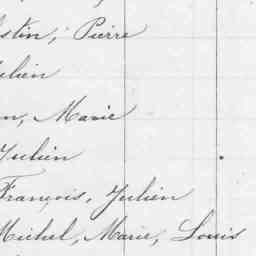 stin, Pierre
ulien
n, Marie
Julien
François, Julien
Michel, Marie, Louis